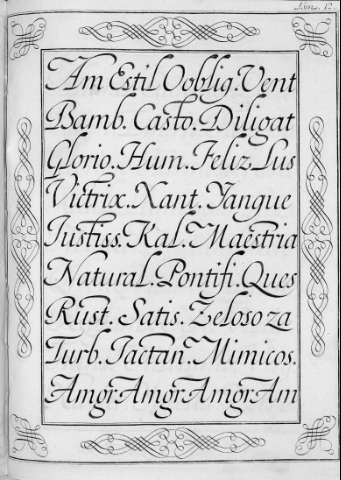 Lam. 12.
Am Estil Ooblig. Vent
Bamb. Casto. Diligat
Glorio. Hum. Feliz Lus
Victrix. Xant. Yangue
Iustiss. Kal. Maestria
Natural. Pontifi. Ques
Rust. Satis. Zeloso za
Turb. Iactan. Mimicos.
AmgrAmgrAmgrAm